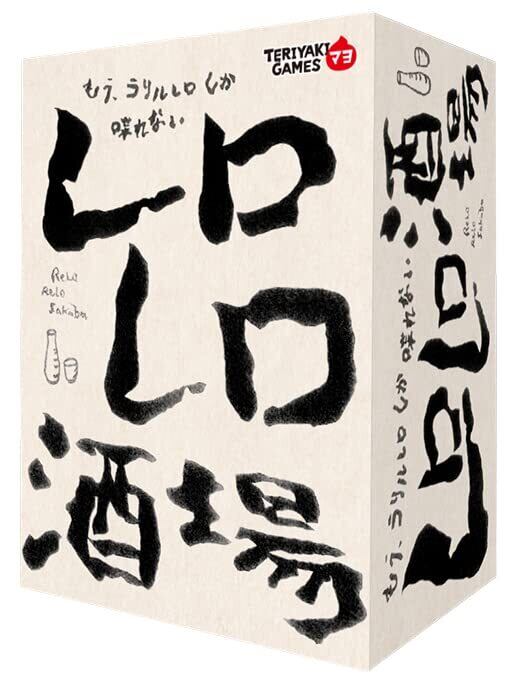 TERIYAKI
GAMES マヨ
もう、ラリルレロしか
喋れない
レロ
レロ
酒場
ReLo
ReLo
Sakaba
レロレロ酒場
ReLo
ReLo
Sakaba
もう、ラリルレロしか喋れない